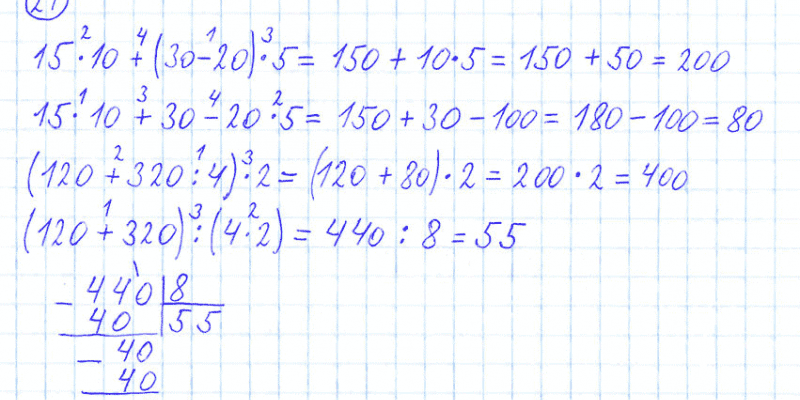 21
15 · 10 + (30 - 20) · 5 = 150 + 10 · 5 = 150 + 50 = 200
15 · 10 + 30 - 20 · 5 = 150 + 30 - 100 = 180 - 100 = 80
(120 + 320 : 4) · 2 = (120 + 80) · 2 = 200 · 2 = 400
(120 + 320) : (4 · 2) = 440 : 8 = 55
- 440 | 8
40 | 55
- 40
40